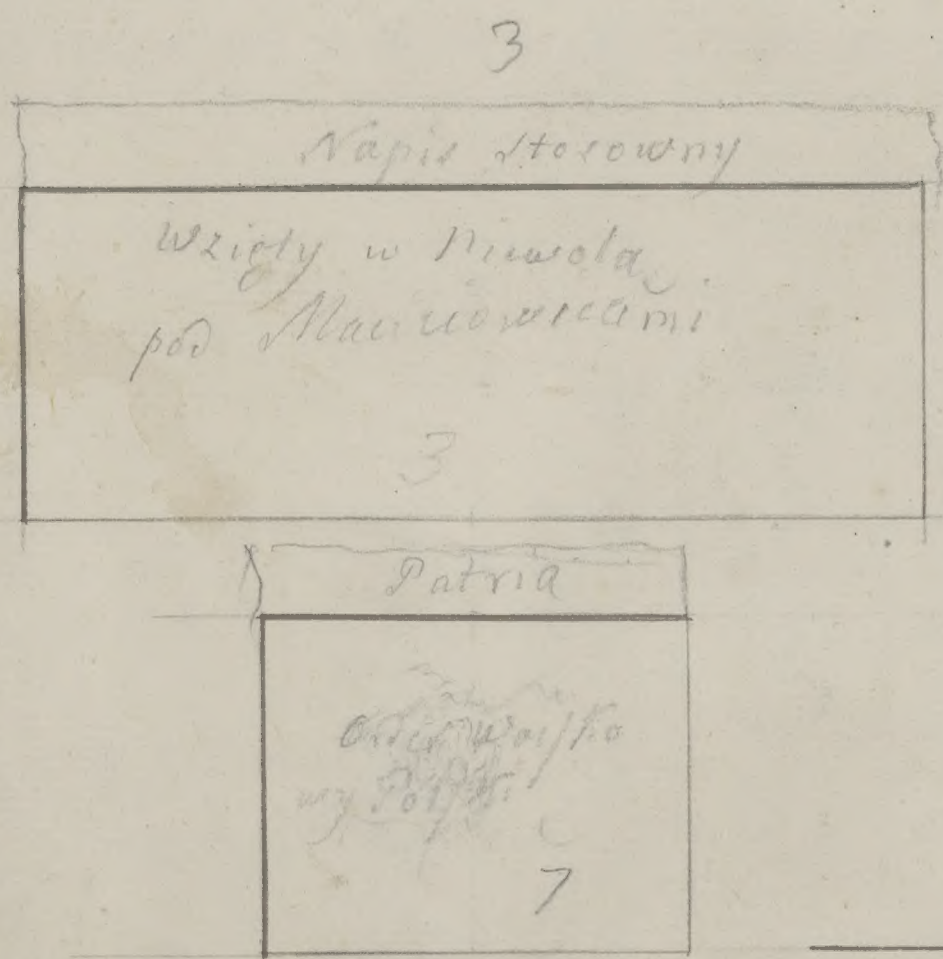 3
Napis stosowny
Wzięty w Niewolą
pod Maciiowicami
3
Patria
Order Woysko
wy Polski
7